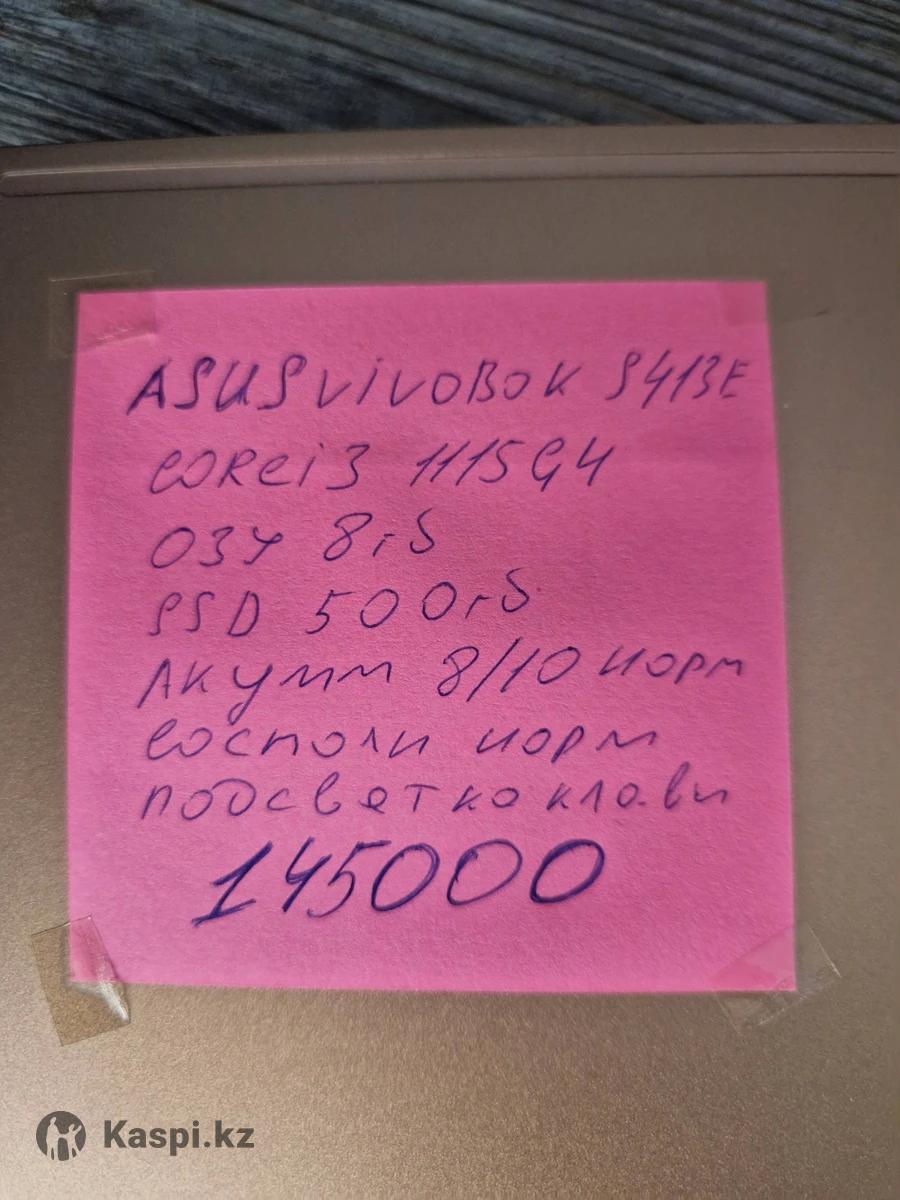 ASUS VIVOBOK S413E
CORE i3 1115G4
ОЗУ 8гб
SSD 500гб
Акумм 8/10 норм
состоян норм
подсветка клави
145000
Kaspi.kz